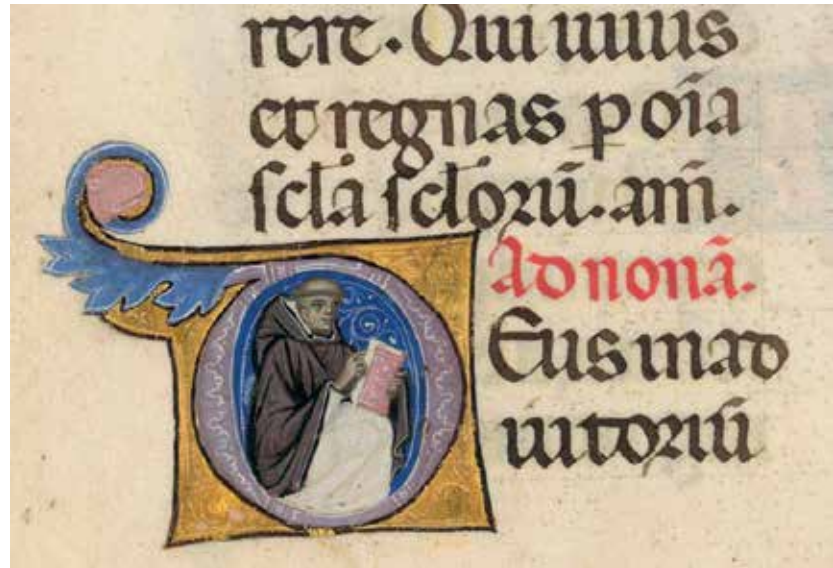 rere. Qui uiuis
et regnas p oīa
scl̄a scl̄orū. am̄.
Ad nonā.
DEus in ad
iutoriū